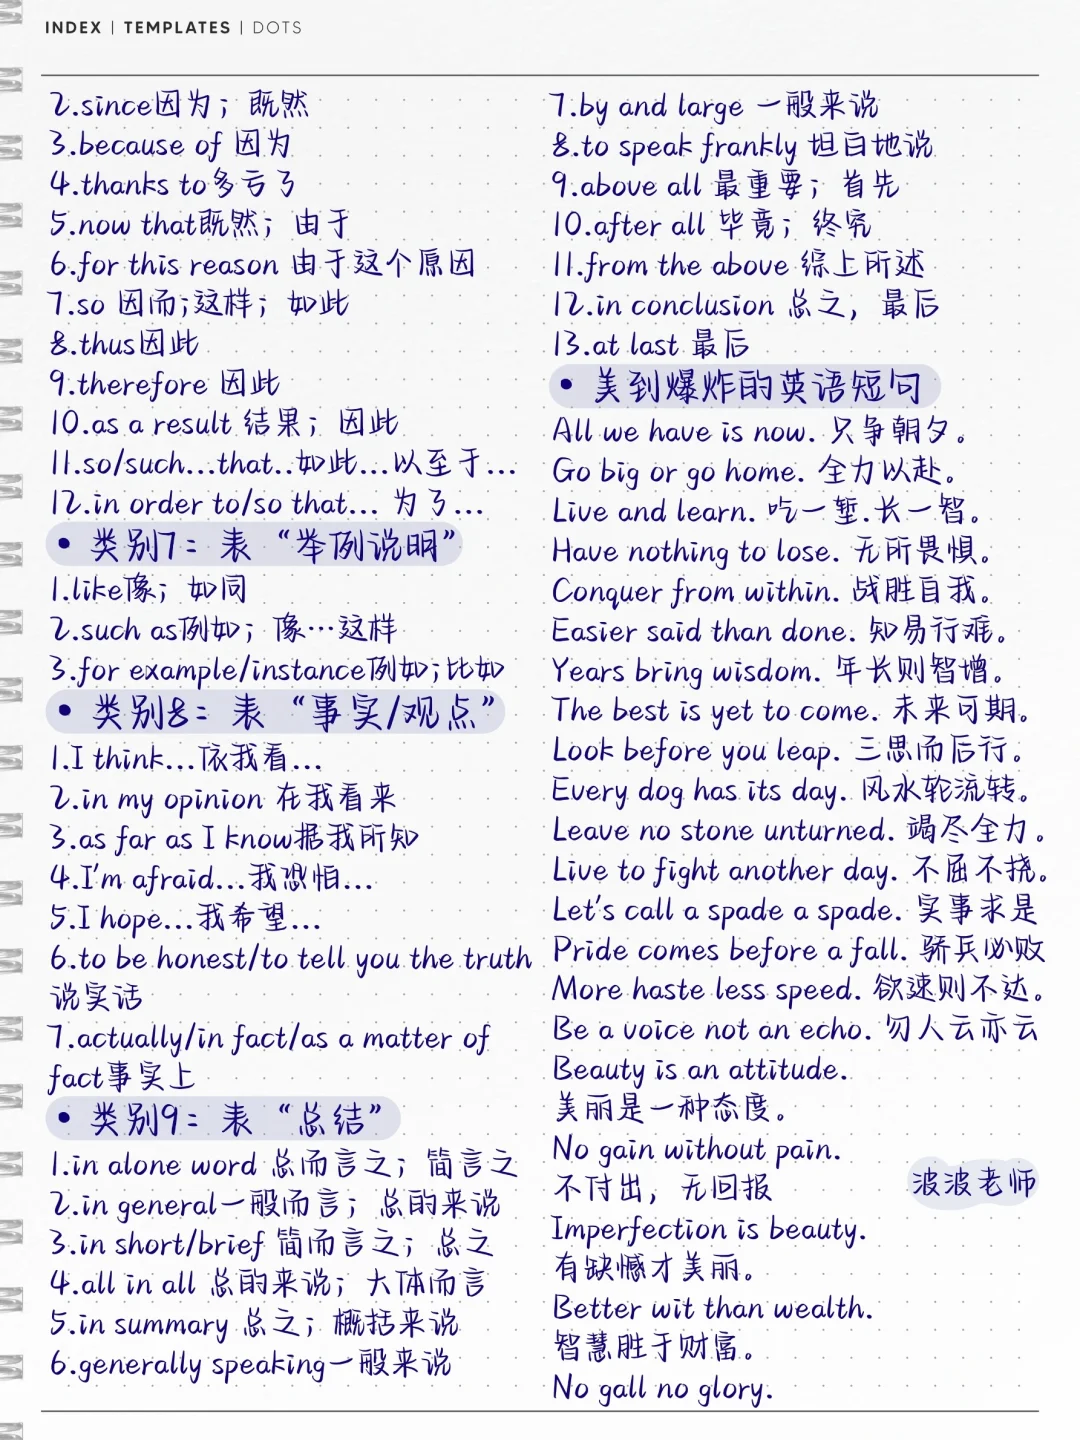 INDEX | TEMPLATES | DOTS
2.since因为；既然
3.because of 因为
4.thanks to多亏了
5.now that既然；由于
6.for this reason 由于这个原因
7.so 因而;这样；如此
8.thus因此
9.therefore 因此
10.as a result 结果；因此
11.so/such...that..如此...以至于...
12.in order to/so that... 为了...
• 类别7：表“举例说明”
1.like像；如同
2.such as例如；像…这样
3.for example/instance例如;比如
• 类别8：表“事实/观点”
1.I think...依我看...
2.in my opinion 在我看来
3.as far as I know据我所知
4.I'm afraid...我恐怕...
5.I hope...我希望...
6.to be honest/to tell you the truth
说实话
7.actually/in fact/as a matter of
fact事实上
• 类别9：表“总结”
1.in alone word 总而言之；简言之
2.in general一般而言；总的来说
3.in short/brief 简而言之；总之
4.all in all 总的来说；大体而言
5.in summary 总之；概括来说
6.generally speaking一般来说
7.by and large 一般来说
8.to speak frankly 坦白地说
9.above all 最重要；首先
10.after all 毕竟；终究
11.from the above 综上所述
12.in conclusion 总之，最后
13.at last 最后
• 美到爆炸的英语短句
All we have is now. 只争朝夕。
Go big or go home. 全力以赴。
Live and learn. 吃一堑.长一智。
Have nothing to lose. 无所畏惧。
Conquer from within. 战胜自我。
Easier said than done. 知易行难。
Years bring wisdom. 年长则智增。
The best is yet to come. 未来可期。
Look before you leap. 三思而后行。
Every dog has its day. 风水轮流转。
Leave no stone unturned. 竭尽全力。
Live to fight another day. 不屈不挠。
Let's call a spade a spade. 实事求是
Pride comes before a fall. 骄兵必败
More haste less speed. 欲速则不达。
Be a voice not an echo. 勿人云亦云
Beauty is an attitude.
美丽是一种态度。
No gain without pain.
不付出，无回报
波波老师
Imperfection is beauty.
有缺憾才美丽。
Better wit than wealth.
智慧胜于财富。
No gall no glory.